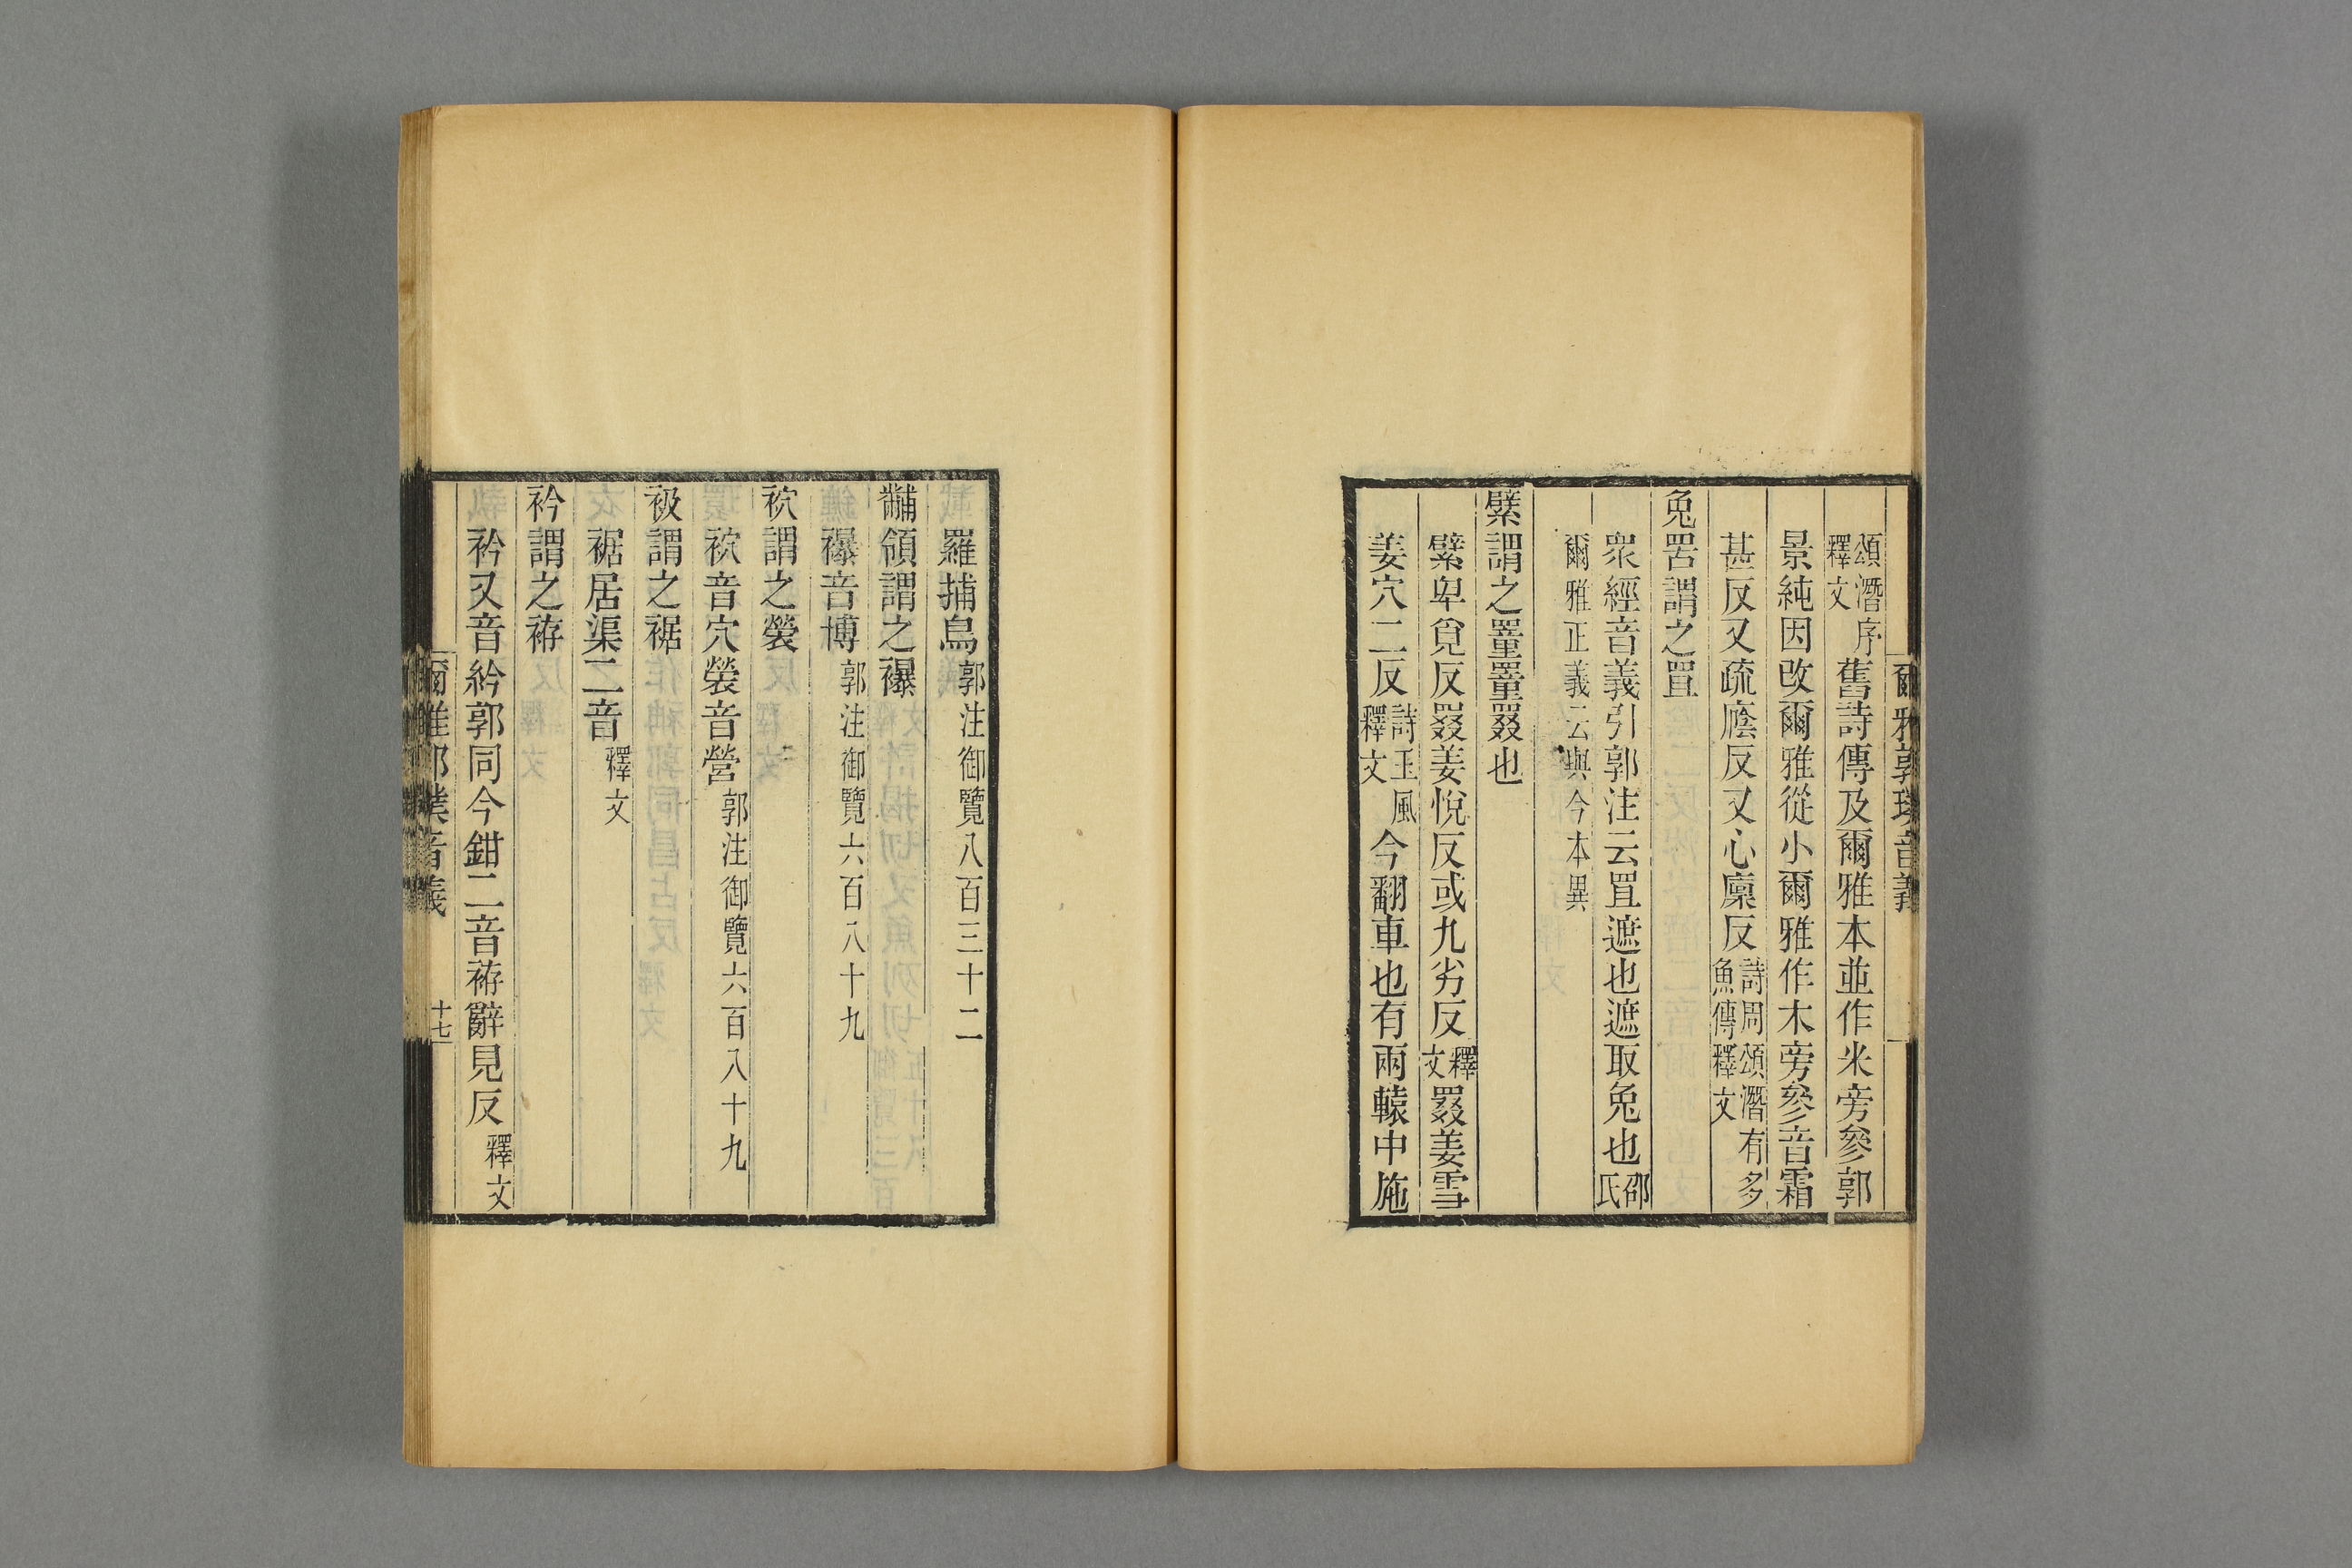 爾雅郭璞音義
頌潛序釋文舊詩傳及爾雅本並作米旁參郭
景純因改爾雅從小爾雅作木旁參音霜
甚反又疏廕反又心廩反詩周頌潛有多魚傳釋文
兔罟謂之罝
衆經音義引郭注云罝遮也遮取兔也邵氏
爾雅正義云與今本異
繴謂之罿罿罬也
繴卑覓反罬姜悅反或九劣反釋文罬姜雪
姜穴二反詩王風釋文今翻車也有兩轅中施
羅捕鳥郭注御覽八百三十二
黼領謂之襮
襮音博郭注御覽六百八十九
袕謂之褮
袕音穴褮音營郭注御覽六百八十九
衱謂之裾
裾居渠二音釋文
衿謂之袸
衿又音紟郭同今鉗二音袸辭見反釋文
爾雅郭璞音義
十七